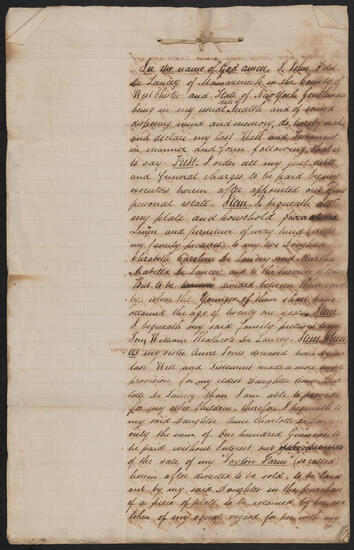 In the name of God amen. I, John Peter
De Lancey of Mamaroneck in the County of
West Chester and State of New York Gentleman
being in my usual state of Health and of sound
disposing mind and memory, do hereby make
and declare my last Will and Testament
in manner and form following, that is
to say. First. I order all my just debts
and funeral charges to be paid by my
executors herein after appointed out of my
personal estate. Item. I bequeath all
my plate and household
Linen and furniture of every kind (except
my family pictures) to my two Daughters
Elizabeth Caroline De Lancey and Martha
Arabella De Lancey, and to the survivor of them
But to be divided between them
by: when the Younger of them shall have
attained the age of twenty one years. Item
I bequeath my said family pictures to my
Son William Heathcote De Lancey. Item Where
as my sister Anne Jones deceased hath by her
last Will and Testament made a more ample
provision for my eldest Daughter Anne Char
lotte De Lancey than I am able to provide
for my other Children, therefore I bequeath to
my said Daughter Anne Charlotte De Lancey
only the sum of One hundred Guineas to
be paid without Interest out
of the sale of my Farm (so called)
herein after directed to be sold; to be laid
out by my said Daughter in the purchase
of a piece of plate, to be retained by her as a
token of my equal regard for her with my